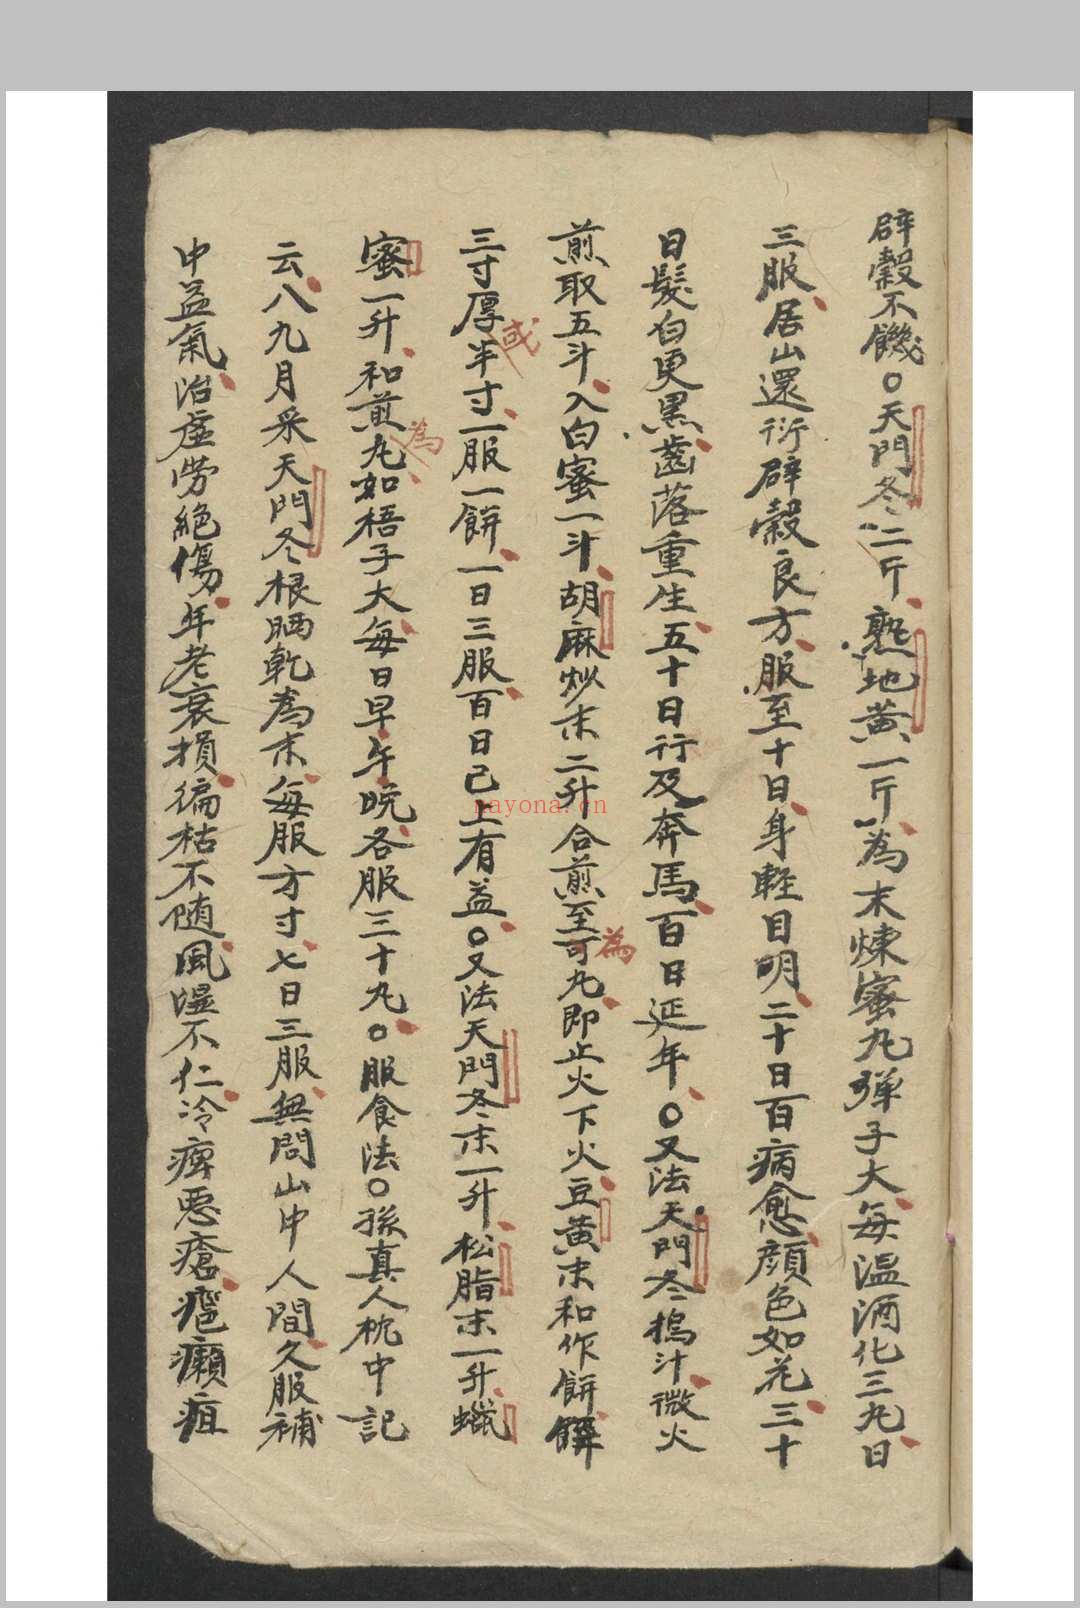 辟穀不饑○天門冬二斤熟地黃一斤為末煉蜜丸彈子大每温酒化三丸日
三服居山還行辟穀良方服至十日身輕目明二十日百病愈顏色如花三十
日髮白更黑齒落重生五十日行及奔馬百日延年○又法天門冬搗汁微火
煎取五斗入白蜜一斗胡麻炒末二升合煎至可為丸即止火下火豆黃末和作餅
三寸厚半寸或一服一餅一日三服百日已上有益○又法天門冬末一升松脂末一升蠟
蜜一升和煎為丸如梧子大每日早午晚各服三十丸○服食法○孫真人枕中記
云八九月采天門冬根晒乾為末每服方寸七日三服無問山中人間久服補
中益氣治虛勞絕傷年老衰損偏枯不随風濕不仁冷痹惡瘡癰癩疽
nayona.cn